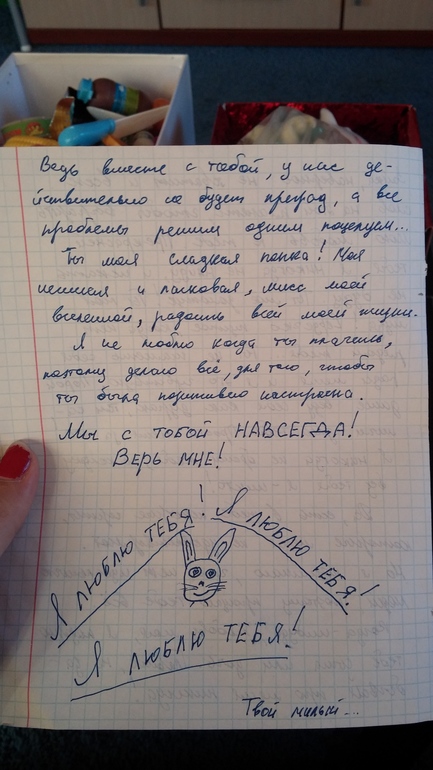 Ведь вместе с тобой, у нас де-
йствительно не будет преград, а все
проблемы решим одним поцелуем...
Ты моя сладкая попка! Моя
нежная и ласковая, мисс моей
вселенной, радость всей моей жизни.
Я не люблю когда ты плачешь,
поэтому делаю всё, для того, чтобы
ты была позитивно настроена.
Мы с тобой НАВСЕГДА!
Верь мне!
Я люблю тебя! Я люблю тебя!
Я люблю тебя!
Твой милый...